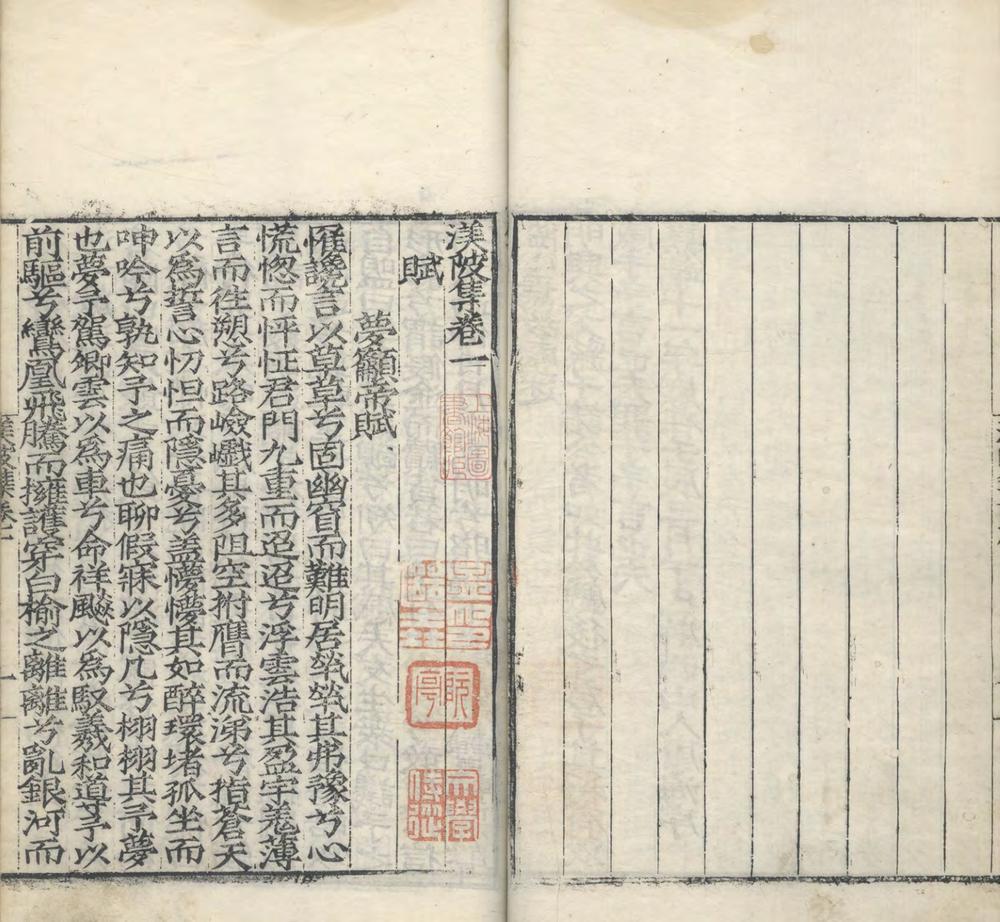 渼陂集卷一
賦
夢籲帝賦
罹讒言以草草兮固幽窅而難明居煢煢其弗豫兮心
慌惚而怦怔君門九重而迢迢兮浮雲浩其盈宇羗薄
言而徃愬兮路嶮巇其多阻空拊膺而流涕兮指蒼天
以爲誓心忉怛而隱憂兮蓋懜懜其如醉環堵孤坐而
呻吟兮孰知予之痛也聊假寐以隱几兮栩栩其予夢
也夢予駕卿雲以爲車兮命祥飈以爲馭羲和導予以
前驅兮鸞凰飛騰而擁護穿白榆之離離兮亂銀河而
渼陂集卷一
一